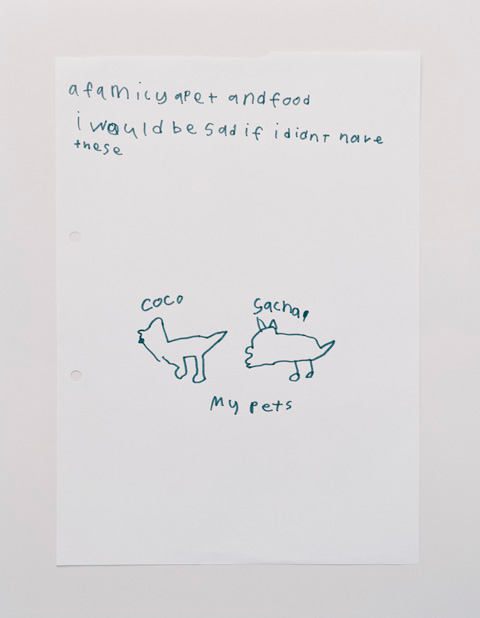 a famicy apet andfood
i would be sad if i didnt have
these
coco
Sacha,
My pets